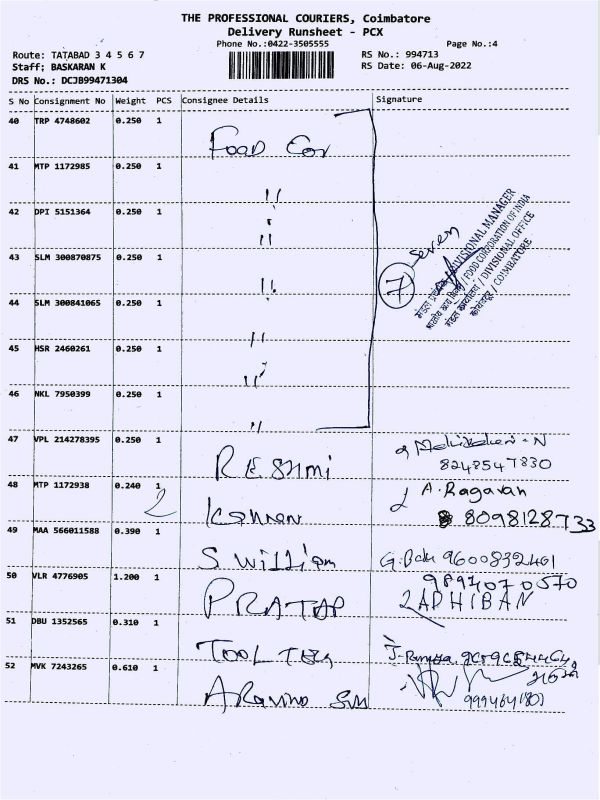 THE PROFESSIONAL COURIERS, Coimbatore
Delivery Runsheet - PCX
Phone No.:0422-3505555
Page No.:4
Route: TATABAD 3 4 5 6 7
RS No.: 994713
Staff; BASKARAN K
RS Date: 06-Aug-2022
DRS No.: DCJB99471304
S No Consignment No Weight PCS Consignee Details Signature
40 TRP 4748602 0.250 1
FOOD Cor
41 MTP 1172985 0.250 1
"
42 DPI 5151364 0.250 1
"
43 SLM 300870875 0.250 1
"
Seven
7
DIVISIONAL MANAGER
भारतीय खाद्य निगम / FOOD CORPORATION OF INDIA
मंडल कार्यालय / DIVISIONAL OFFICE
कोयंबत्तूर / COIMBATORE
44 SLM 300841065 0.250 1
"
45 HSR 2460261 0.250 1
"
46 NKL 7950399 0.250 1
"
47 VPL 214278395 0.250 1
RESHMI
8248547830
48 MTP 1172938 0.240 1
2
A. Ragavan
8098128733
49 MAA 566011588 0.390 1
S William
9600832401
50 VLR 4776905 1.200 1
PRATAP
9894070570
ADHIBAN
51 DBU 1352565 0.310 1
TOOL
52 MVK 7243265 0.610 1
Aravind